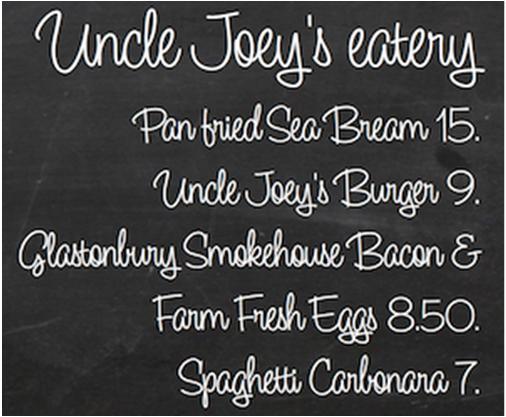 Uncle Joey's eatery
Pan fried Sea Bream 15.
Uncle Joey's Burger 9.
Glastonbury Smokehouse Bacon &
Farm Fresh Eggs 8.50.
Spaghetti Carbonara 7.